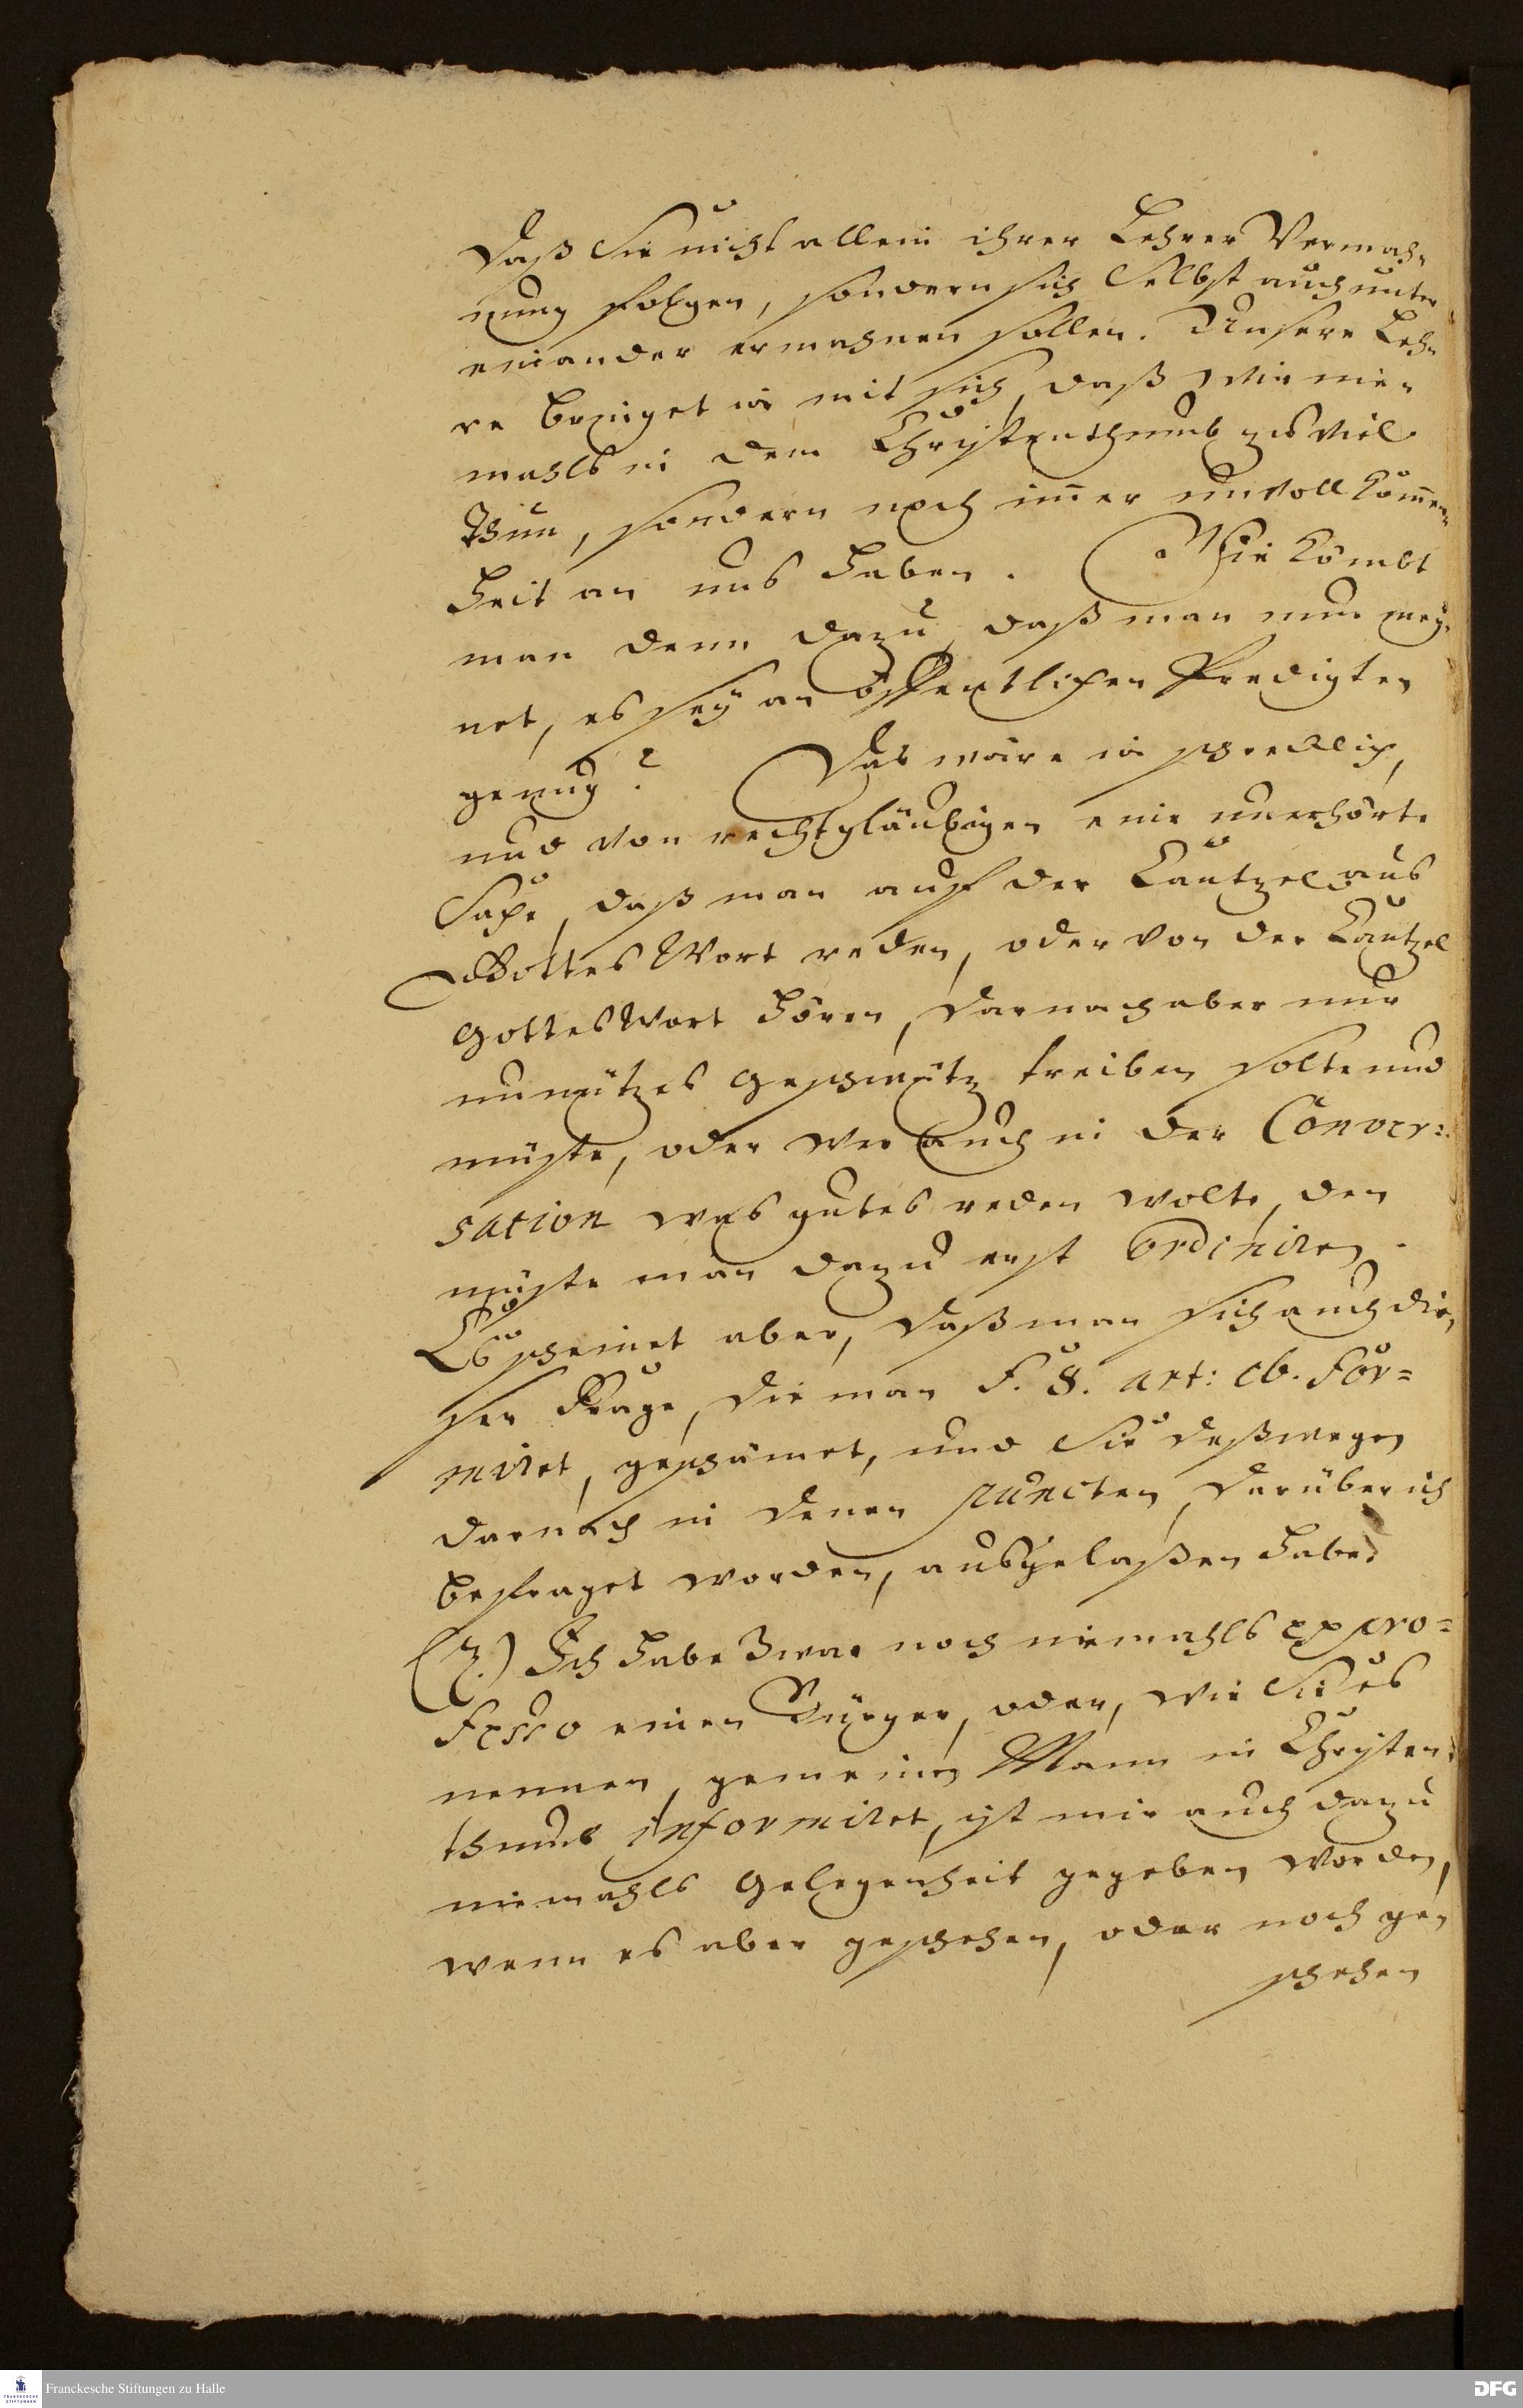 daß Sie nicht allein ihrer Lehrer Vermah-
nung folgen, sondern sich Selbst auch unter
einander ermahnen sollen. Unsere Leh-
re bringet ia mit sich, daß wir nie-
mahls in dem Christenthumb zu viel
thun, sondern noch im̅er unvollkom̅en-
heit an uns haben. Wie kömbt
man denn dazu, daß man nun mey-
net, es sey an öffentlichen Predigten
genug? Das wäre ia schrecklich,
und von rechtgläubigen eine unerhörte
Sache, daß man auf der Cantzel aus
Gottes Wort reden, oder von der Cantzel
Gottes Wort hören, darnach aber nur
unnützes geschwätz treiben solte und
müste, oder wer auch in der Conver-
sation was gutes reden wolte, den
müste man dazu erst ordiniren.
Es scheinet aber, daß man sich auch die-
ser Frage, die man f. 8. art: 16. for-
miret, geschämet, und Sie deßwegen
darnach in denen puncten, darüber ich
befraget worden, ausgelaßen habe.
(7.) Ich habe zwar noch niemahls ex pro-
fesso einen Bürger, oder, wie Sie es
nennen, gemeinen Mann in Christen-
thumb informiret, ist mir auch dazu
niemahls gelegenheit gegeben worden,
wenn es aber geschehen, oder noch ge-
schehen
Franckesche Stiftungen zu Halle
DFG